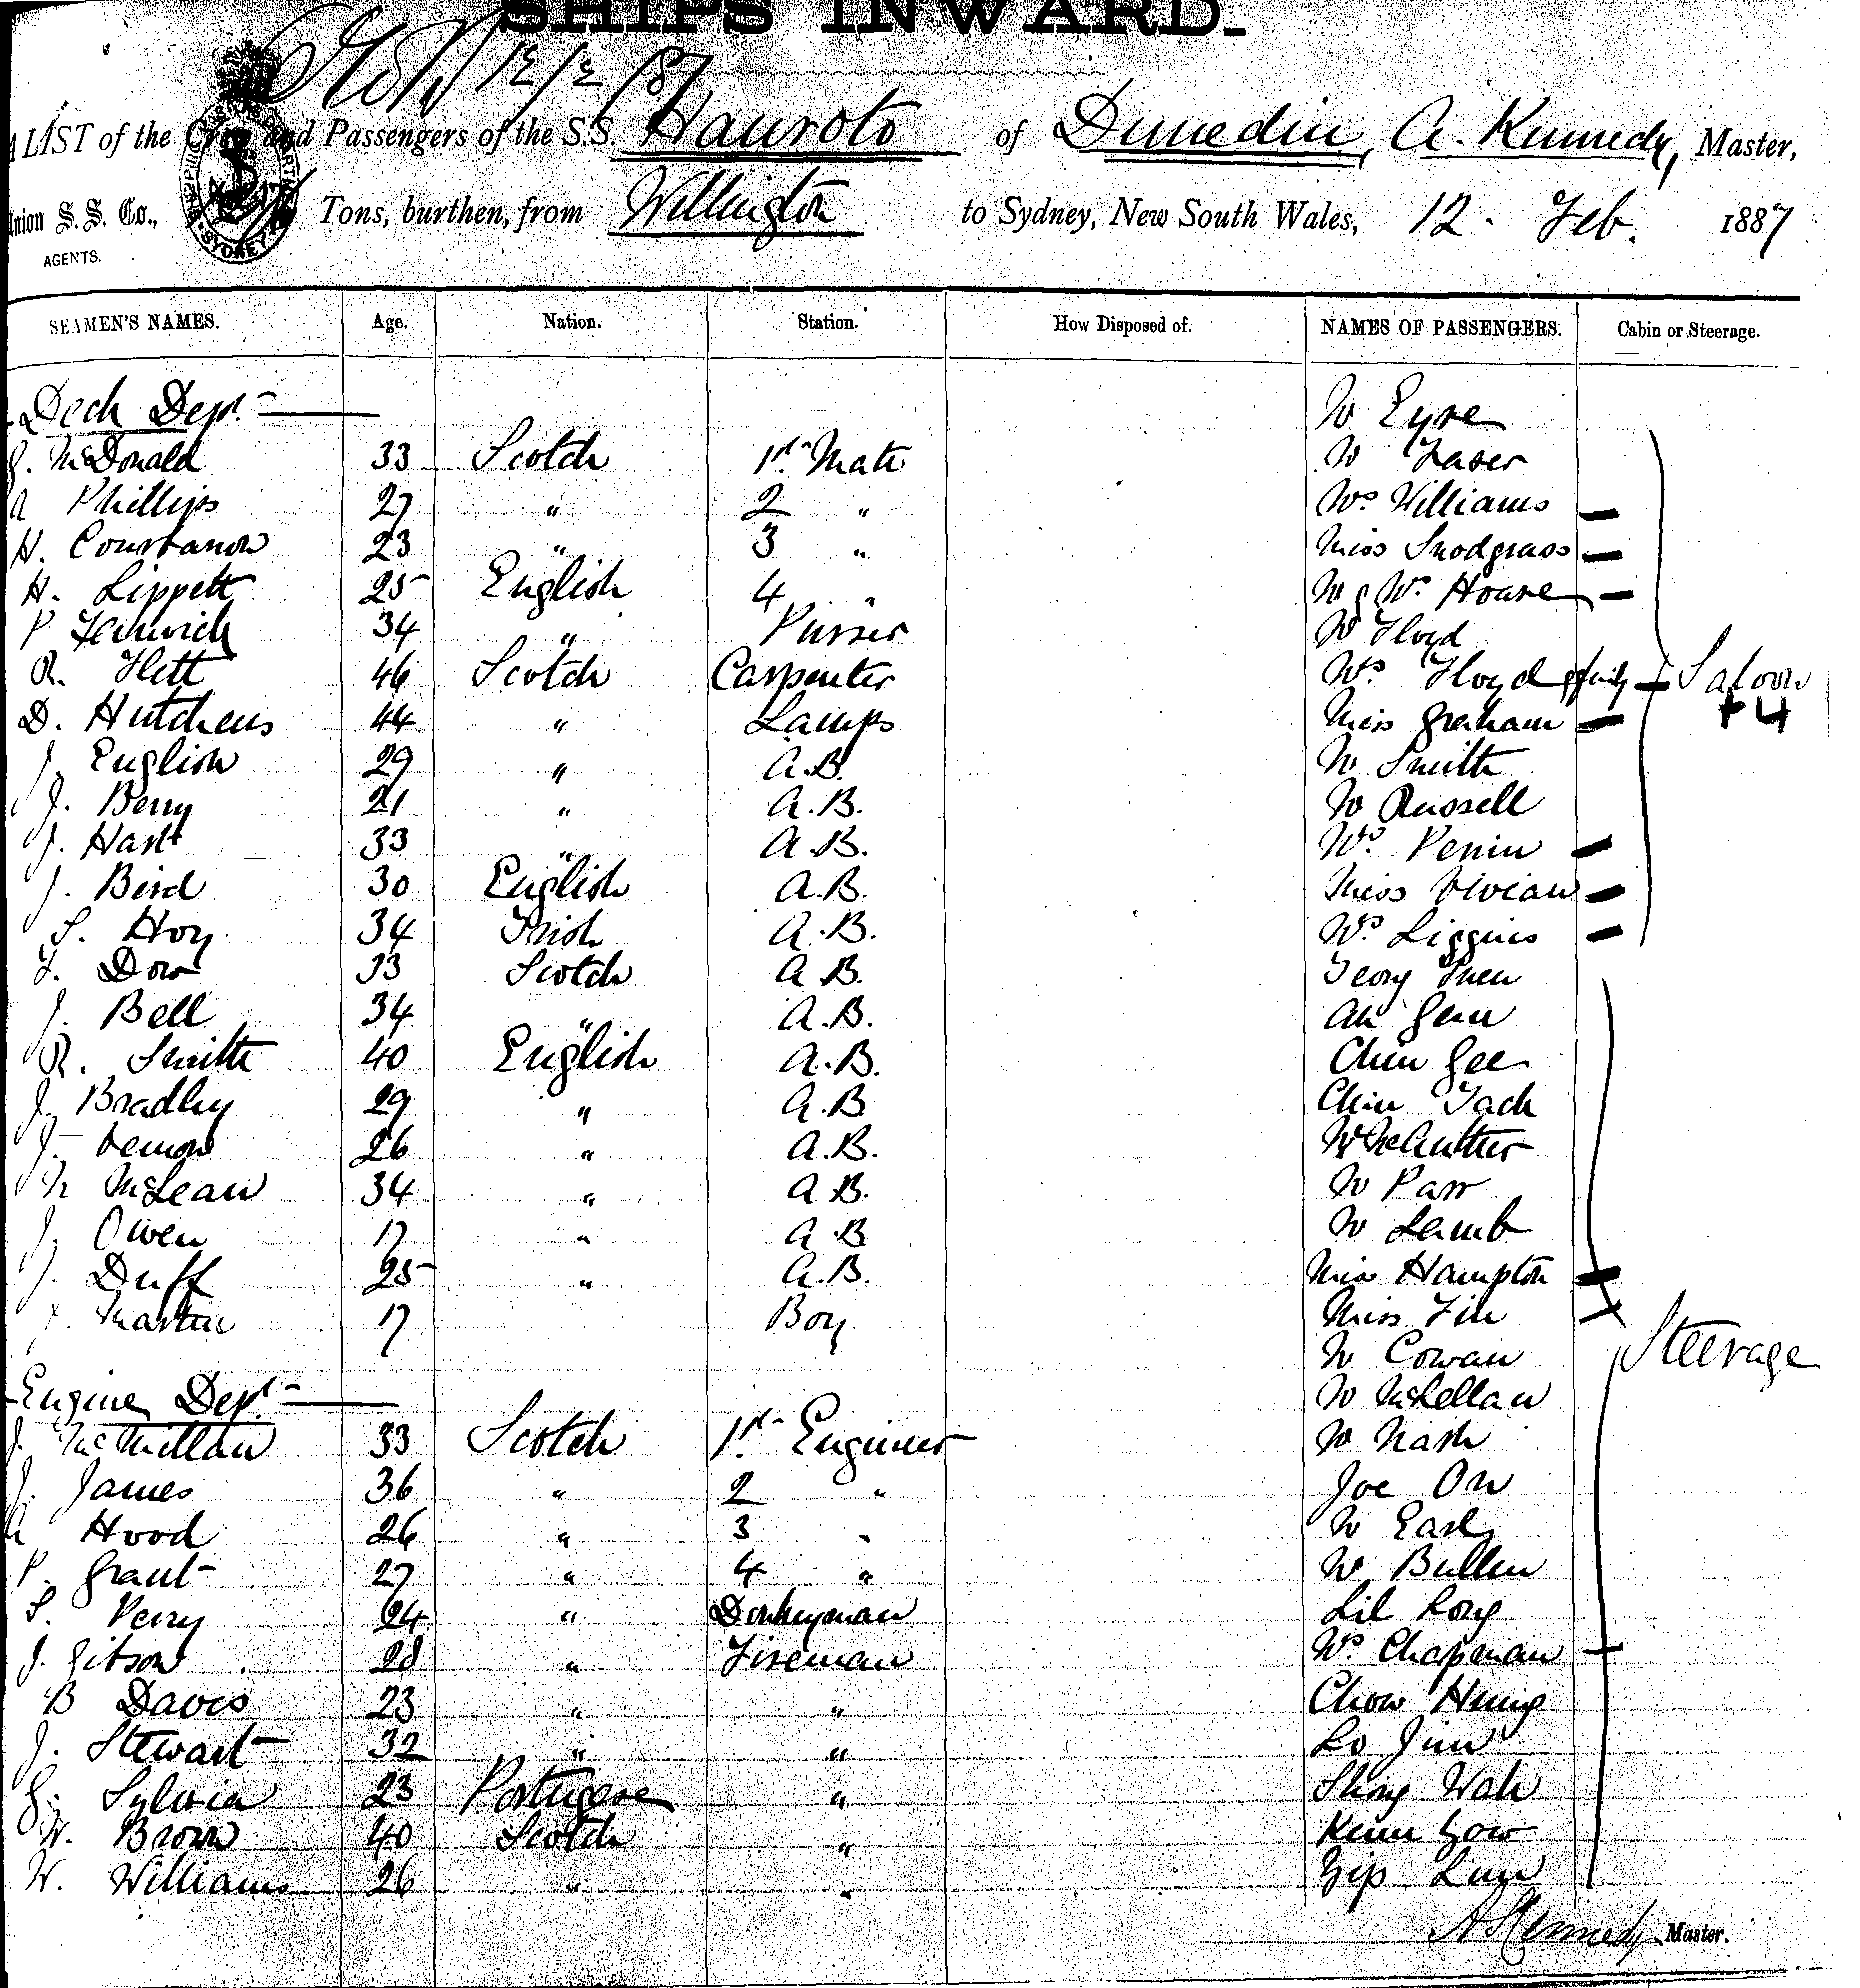 SHIPS INWARD.
A LIST of the Crew and Passengers of the S.S. Hauroto of Dunedin, A. Kennedy, Master,
Union S. S. Co., Tons, burthen, from Wellington to Sydney, New South Wales, 12 - Feb. 1887
AGENTS.
SEAMEN'S NAMES. Age. Nation. Station. How Disposed of. NAMES OF PASSENGERS. Cabin or Steerage.
Deck Dept. — W Eyre
McDonald 33 Scotch 1st Mate
A Phillips 27 " 2 " Williams
H. 23 " 3 " Miss Snodgrass
H. Lippett 25 English 4 " Hoare
P Fenwick 34 " Purser Floyd
R. Flett 46 Scotch Carpenter Floyd & family Saloon
D. Hutchens 44 " Lamps Miss Graham +4
J. English 29 " A.B. Smith
J. Berry 21 " A.B. Russell
J. Hart 33 " A.B.
J. Bird 30 English A.B. Miss Vivian
S. Hoy 34 Irish A.B. Liggins
Dow 33 Scotch A B.
J. Bell 34 " A.B. Ah
R. Smith 40 English A.B. Chin Gee
J. Bradley 29 " A.B
J. Vernon 26 " A.B.
McLean 34 " A B. Parr
J. Owen 17 " A B Lamb
J. Duff 25 " A.B. Miss Hampton
Martin 17 Boy Miss
Cowan Steerage
Engine Dept. — McLellan
J. McMillan 33 Scotch 1st Engineer Nash
J. James 36 " 2 " Joe
A Hood 26 " 3 " Earl
P. Grant 27 " 4 " Bullen
S. Perry 24 " Donkeyman
J. Gibson 28 " Fireman Chapman
B Davis 23 " " Chow Hung
J. Stewart 32 " "
Sylvia 23 Portugese " Wah
W. Brown 40 Scotch "
W. Williams 26 " "
A Kennedy Master.